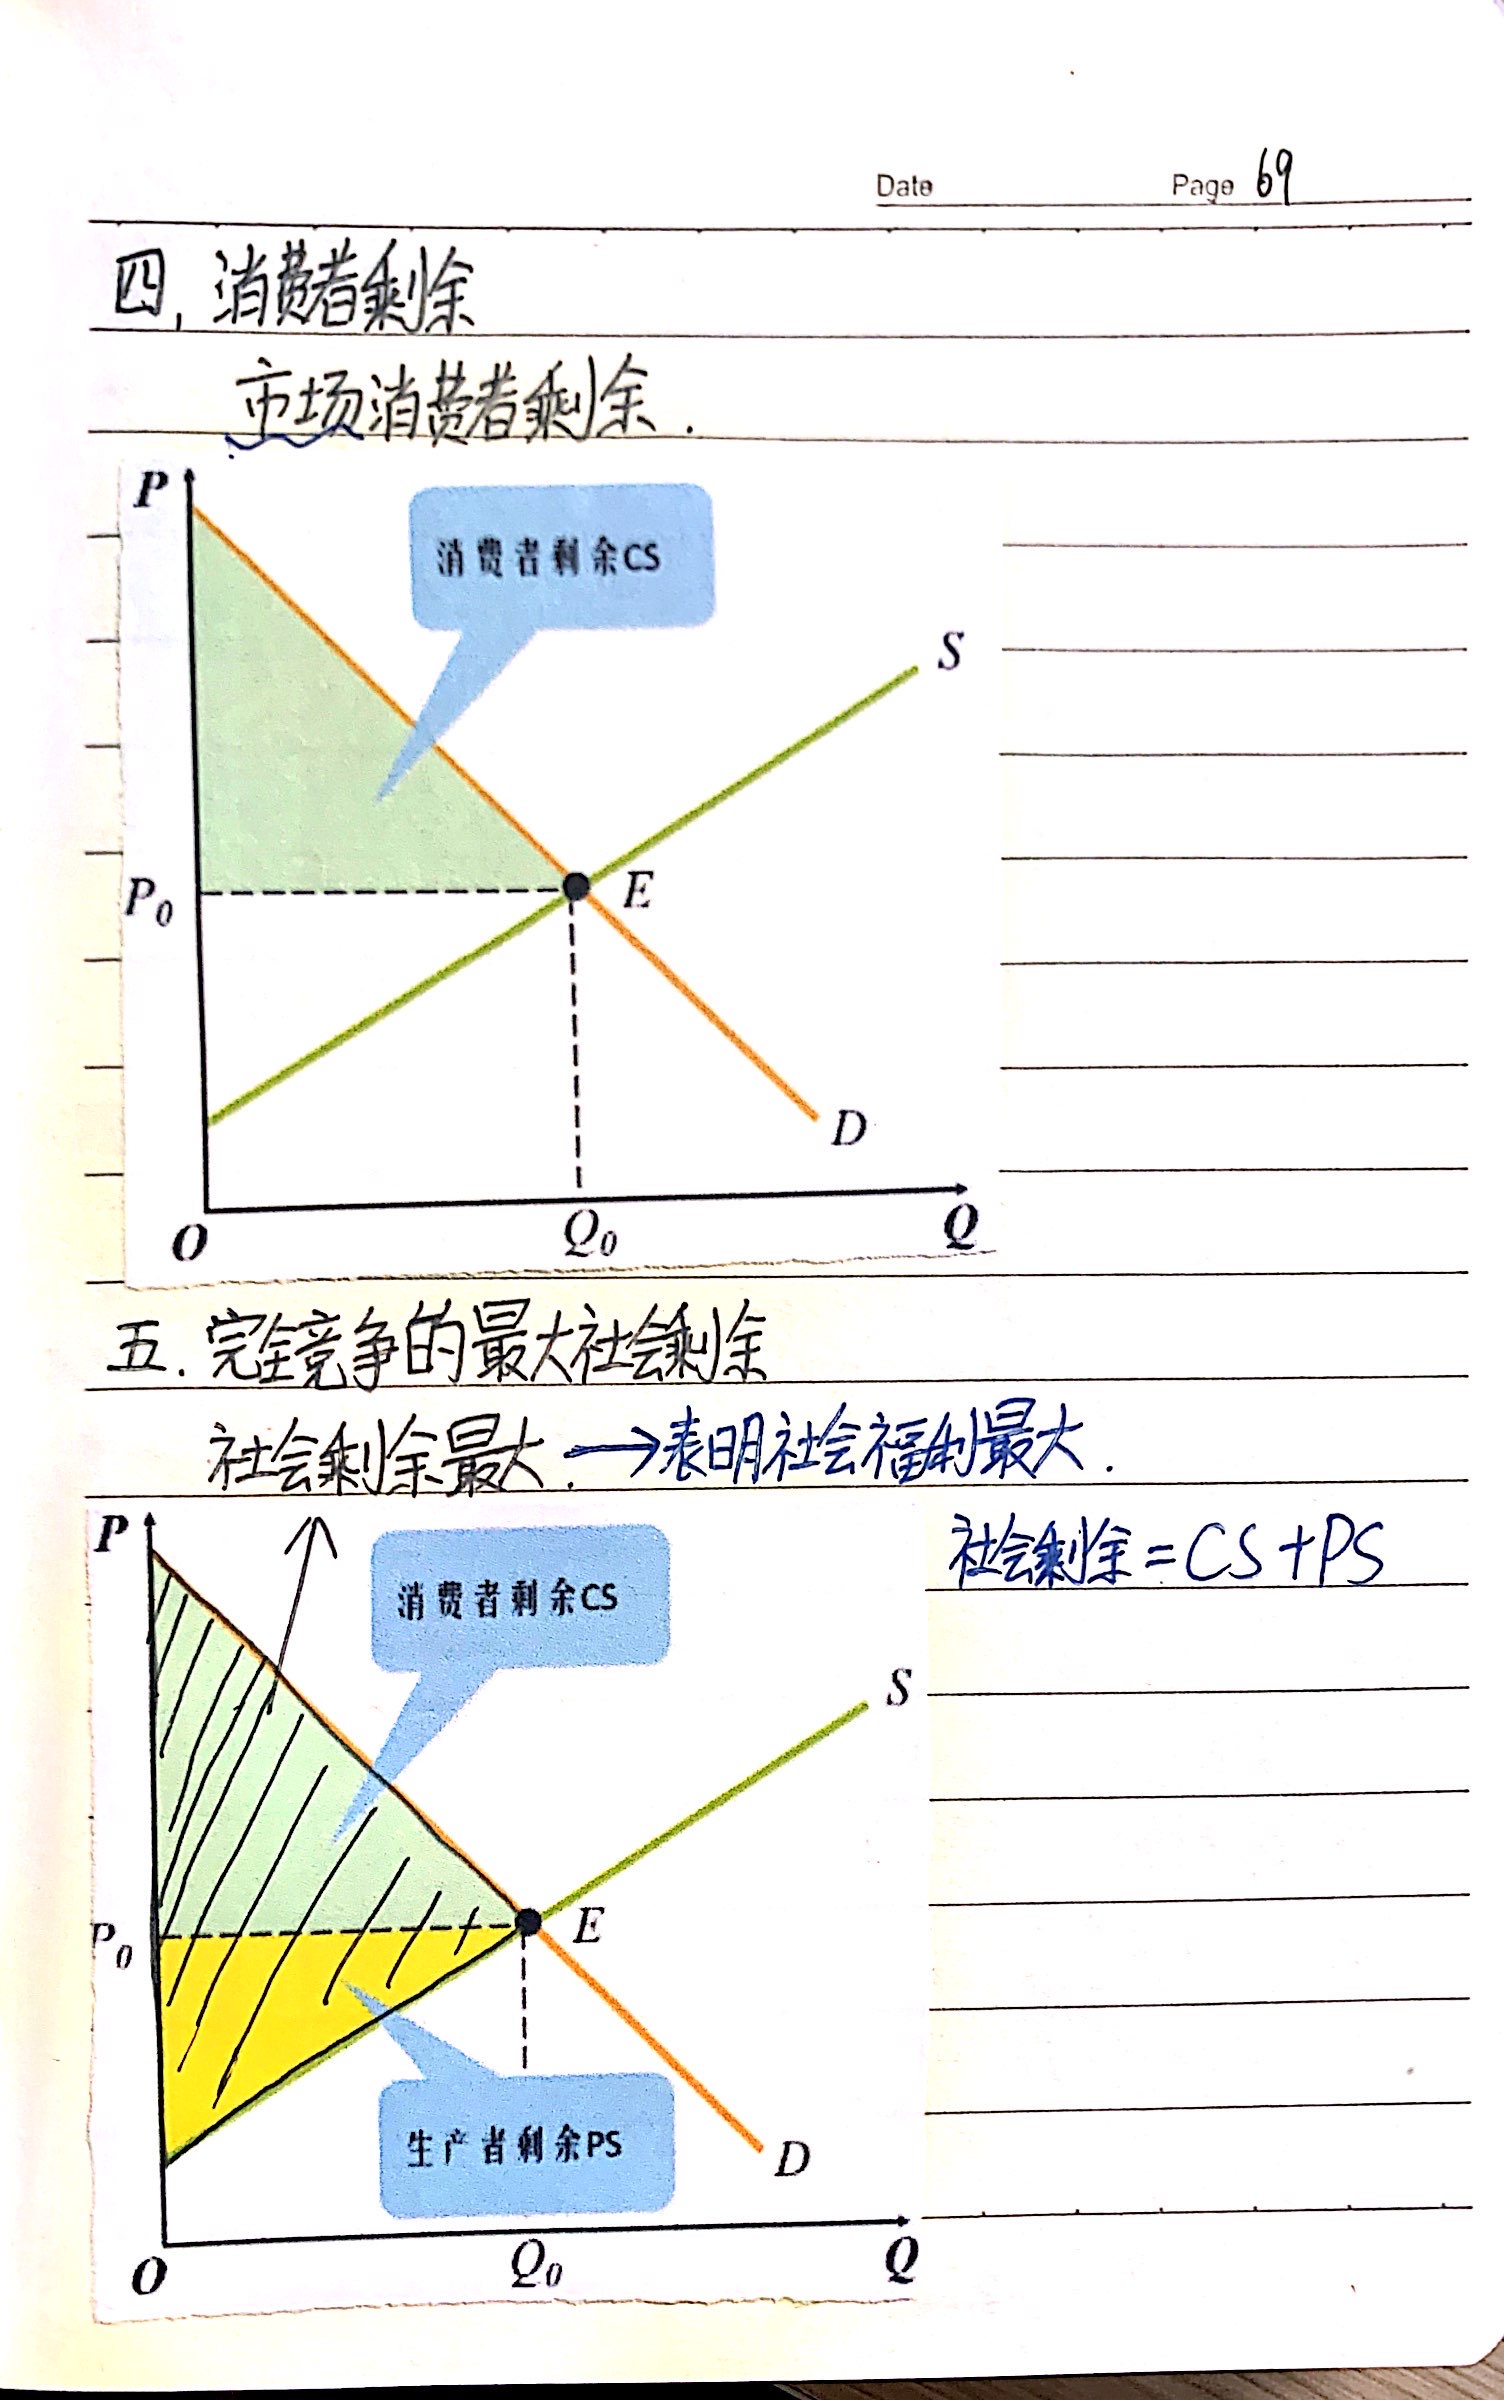 Date Page 69
四, 消费者剩余
市场消费者剩余.
P
消费者剩余CS
S
P0 E
D
O Q0 Q
五. 完全竞争的最大社会剩余
社会剩余最大. →表明社会福利最大.
P
社会剩余=CS+PS
消费者剩余CS
S
P0 E
生产者剩余PS
D
O Q0 Q